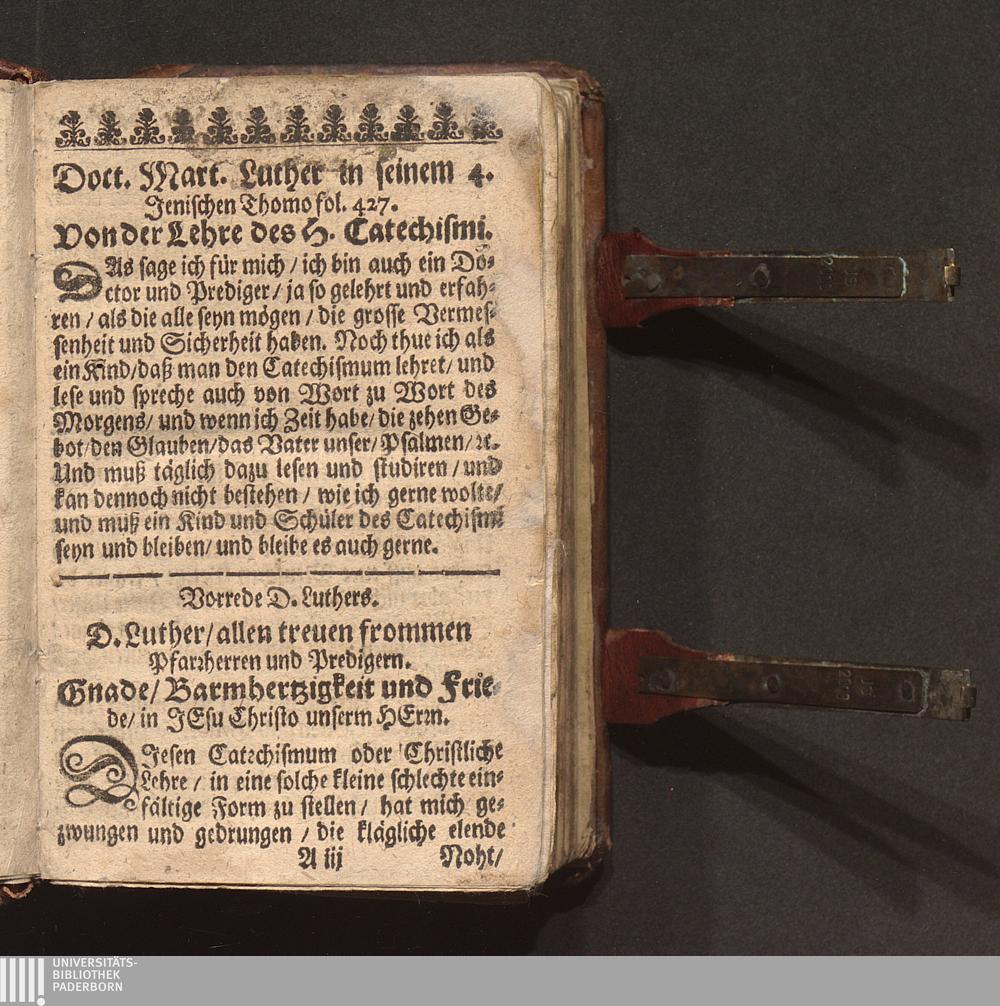 Doct. Mart. Luther in seinem 4.
Jenischen Thomo fol. 427.
Von der Lehre des H. Catechismi.
DAs sage ich für mich / ich bin auch ein Do-
ctor und Prediger / ja so gelehrt und erfah-
ren / als die alle seyn mögen / die grosse Vermes-
senheit und Sicherheit haben. Noch thue ich als
ein Kind / daß man den Catechismum lehret / und
lese und spreche auch von Wort zu Wort des
Morgens / und wenn ich Zeit habe / die zehen Ge-
bot / den Glauben / das Vater unser / Psalmen / ꝛc.
Und muß täglich dazu lesen und studiren / und
kan dennoch nicht bestehen / wie ich gerne wolte /
und muß ein Kind und Schüler des Catechismi
seyn und bleiben / und bleibe es auch gerne.
Vorrede D. Luthers.
D. Luther / allen treuen frommen
Pfarꝛherren und Predigern.
Gnade / Barmhertzigkeit und Frie-
de / in JEsu Christo unserm HErꝛn.
DIesen Catechismum oder Christliche
Lehre / in eine solche kleine schlechte ein-
fältige Form zu stellen / hat mich ge-
zwungen und gedrungen / die klägliche elende
A iij Noht /
UNIVERSITÄTS-
BIBLIOTHEK
PADERBORN